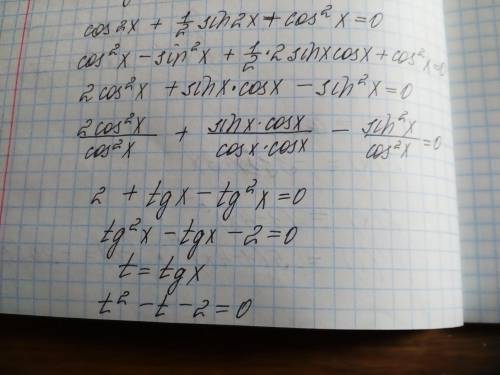 cos2x + 1/2 sin2x + cos²x = 0
cos²x - sin²x + 1/2 · 2 sinx cosx + cos²x = 0
2cos²x + sinx · cosx - sin²x = 0
2cos²x/cos²x + sinx · cosx/cosx · cosx - sin²x/cos²x = 0
2 + tgx - tg²x = 0
tg²x - tgx - 2 = 0
t = tgx
t² - t - 2 = 0